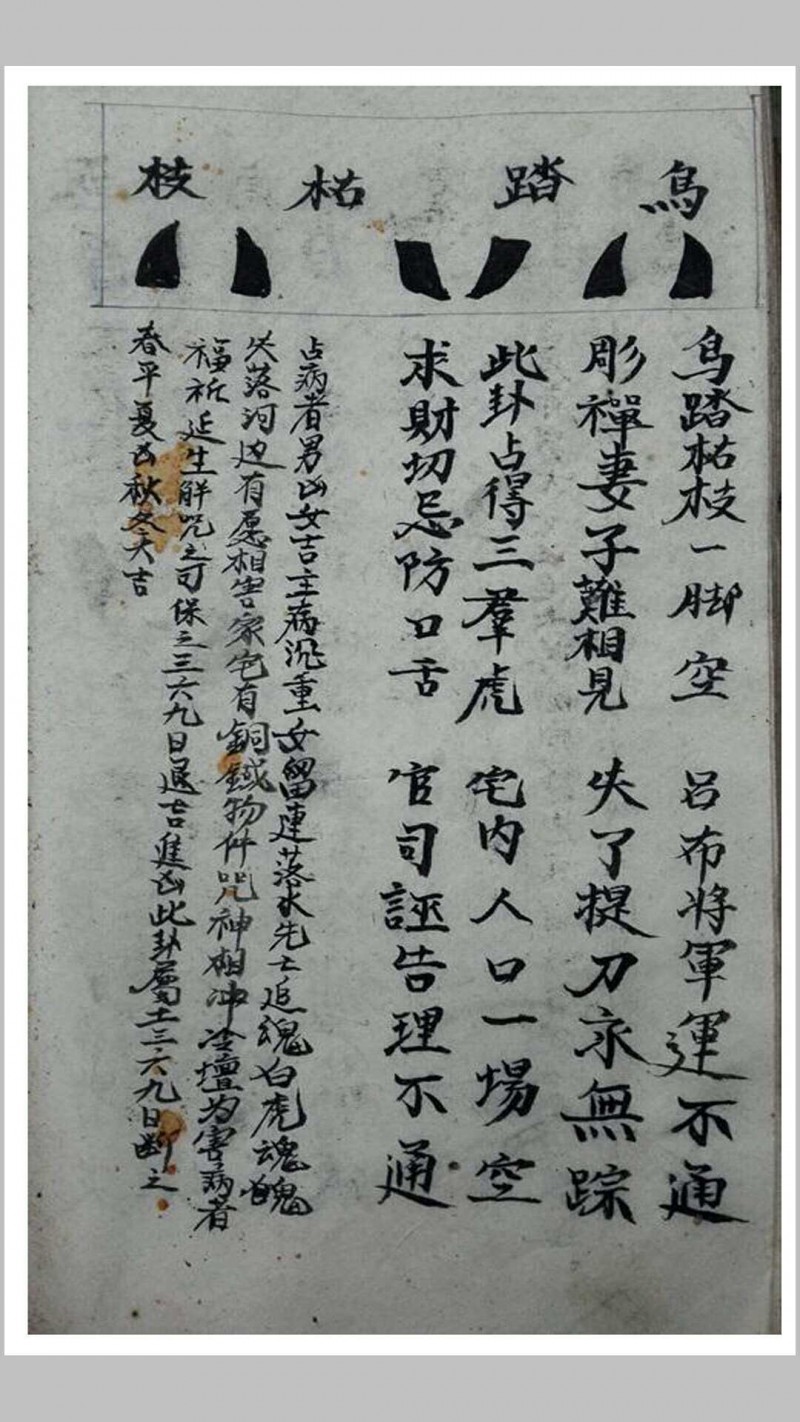 烏踏枯枝
烏踏枯枝一脚空 吕布將軍運不通
彫禪妻子難相見 失了提刀永無踪
此卦占得三羣虎 宅内人口一場空
求財切忌防口舌 官司誣告理不通
占病者男凶女吉主病沉重女留連落水先亡追魂白虎魂魄
失落河边有愿相害家宅有銅鐵物件咒神相冲冷壇为害病者
福祈延生解咒之可保之三六九日退吉進凶此卦屬土三六九日斷之
春平夏凶秋冬大吉